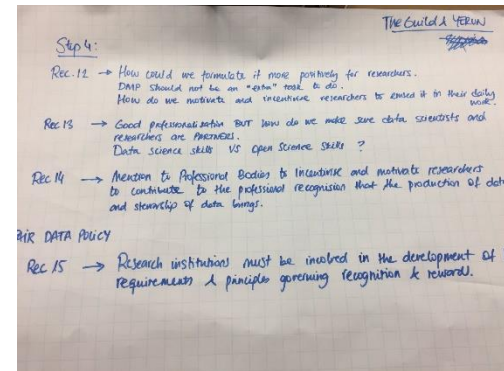 The Guild & YERUN
Step 4:
Rec. 12 → How could we formulate it more positively for researchers.
DMP should not be an "extra" task to do.
How do we motivate and incentivise researchers to embed it in their daily
work.
Rec 13 → Good professionalisation BUT how do we make sure data scientists and
researchers are PARTNERS.
Data science skills VS open science skills ?
Rec 14 → Mention to Professional Bodies to incentivise and motivate researchers
to contribute to the professional recognision that the production of dat
and stewership of data brings.
DATA POLICY
Rec 15 → Research institutions must be involved in the development of
requirements & principles governing recognition & reward.